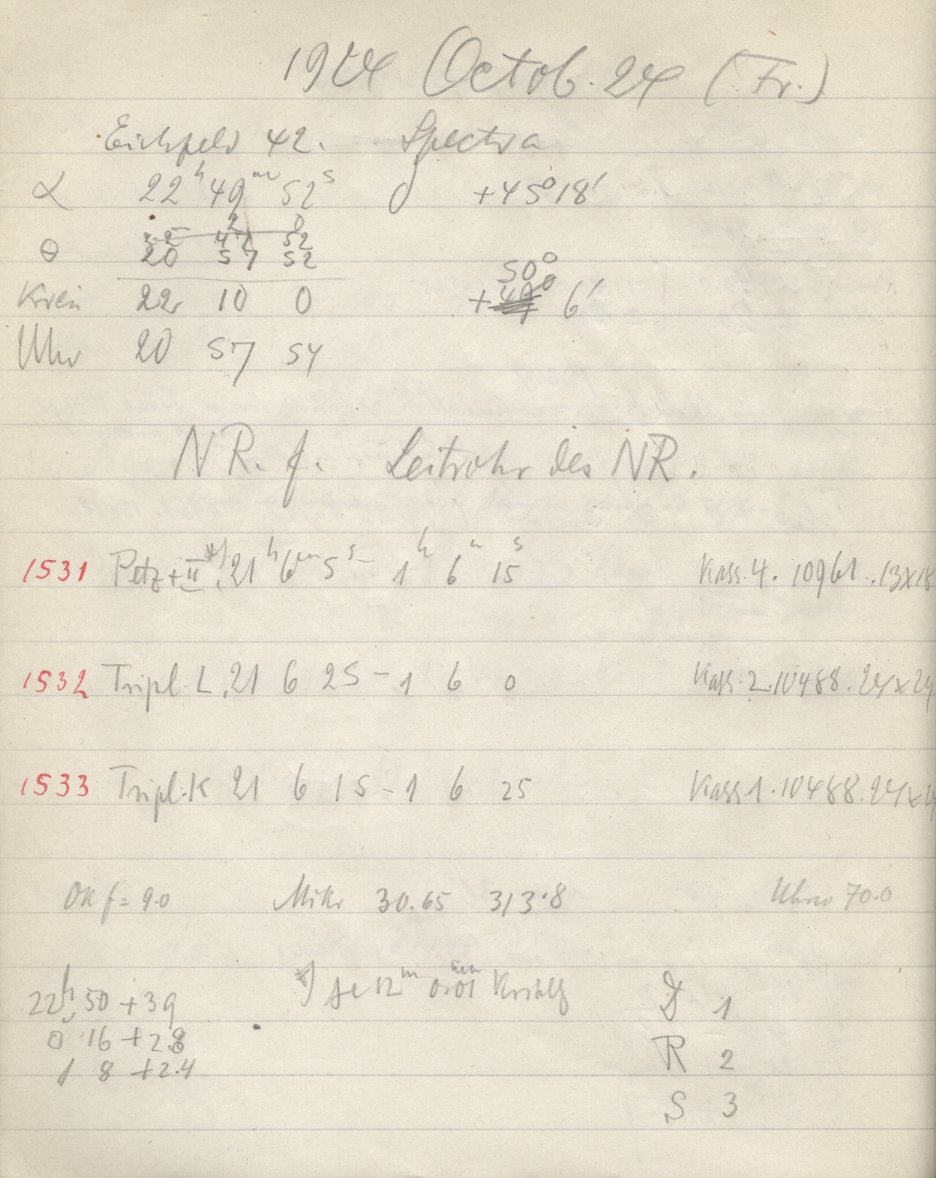 1924 Octob. 24 (Fr.)
Eichfeld 42. Spectra
α 22ʰ 49ᵐ 52ˢ +45° 18′
2 0
22 47 52
θ 20 57 52
50°
Kreis 22 10 0 + 49° 6′
Uhr 20 57 54
NR. f. Leitrohr des NR.
1531 Petz + II *) 21ʰ 6ᵐ 5ˢ – 1ʰ 6ᵐ 15ˢ Kass. 4. 10961. 13x18
1532 Tripl. L. 21 6 25 – 1 6 0 Kass. 2. 10488. 24x24
1533 Tripl. K 21 6 15 – 1 6 25 Kass. 1. 10488. 24x2
Ok f = 90 Mikr 30.65 313.8 Uhr 70.0
22ʰ 50 + 39 *) je 12ᵐ 0.01 D 1
0 16 + 2.8 R 2
1 8 + 2.4 S 3